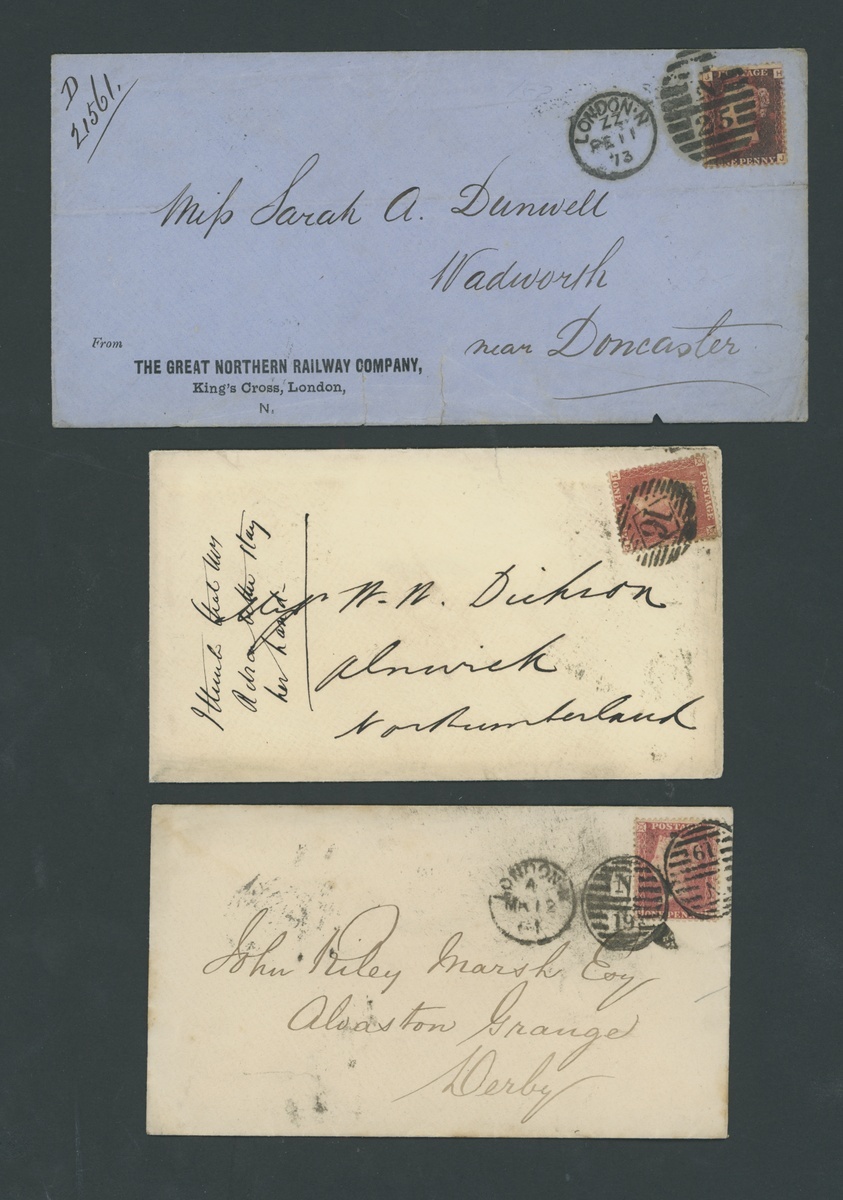 D
21561.
LONDON·N
ZZ
DE 11
73
POSTAGE
J H
25
ONE PENNY
J
Miss Sarah A. Dunwell
Wadworth
near Doncaster
From
THE GREAT NORTHERN RAILWAY COMPANY,
King's Cross, London,
N.
POSTAGE
16
I think that
better stay
her hand
W. W. Dickson
Alnwick
Northumberland
LONDON·N
4
MR 12
61
N
19
POSTAGE
19
ONE PENNY
John Riley Marsh Esq
Alvaston Grange
Derby